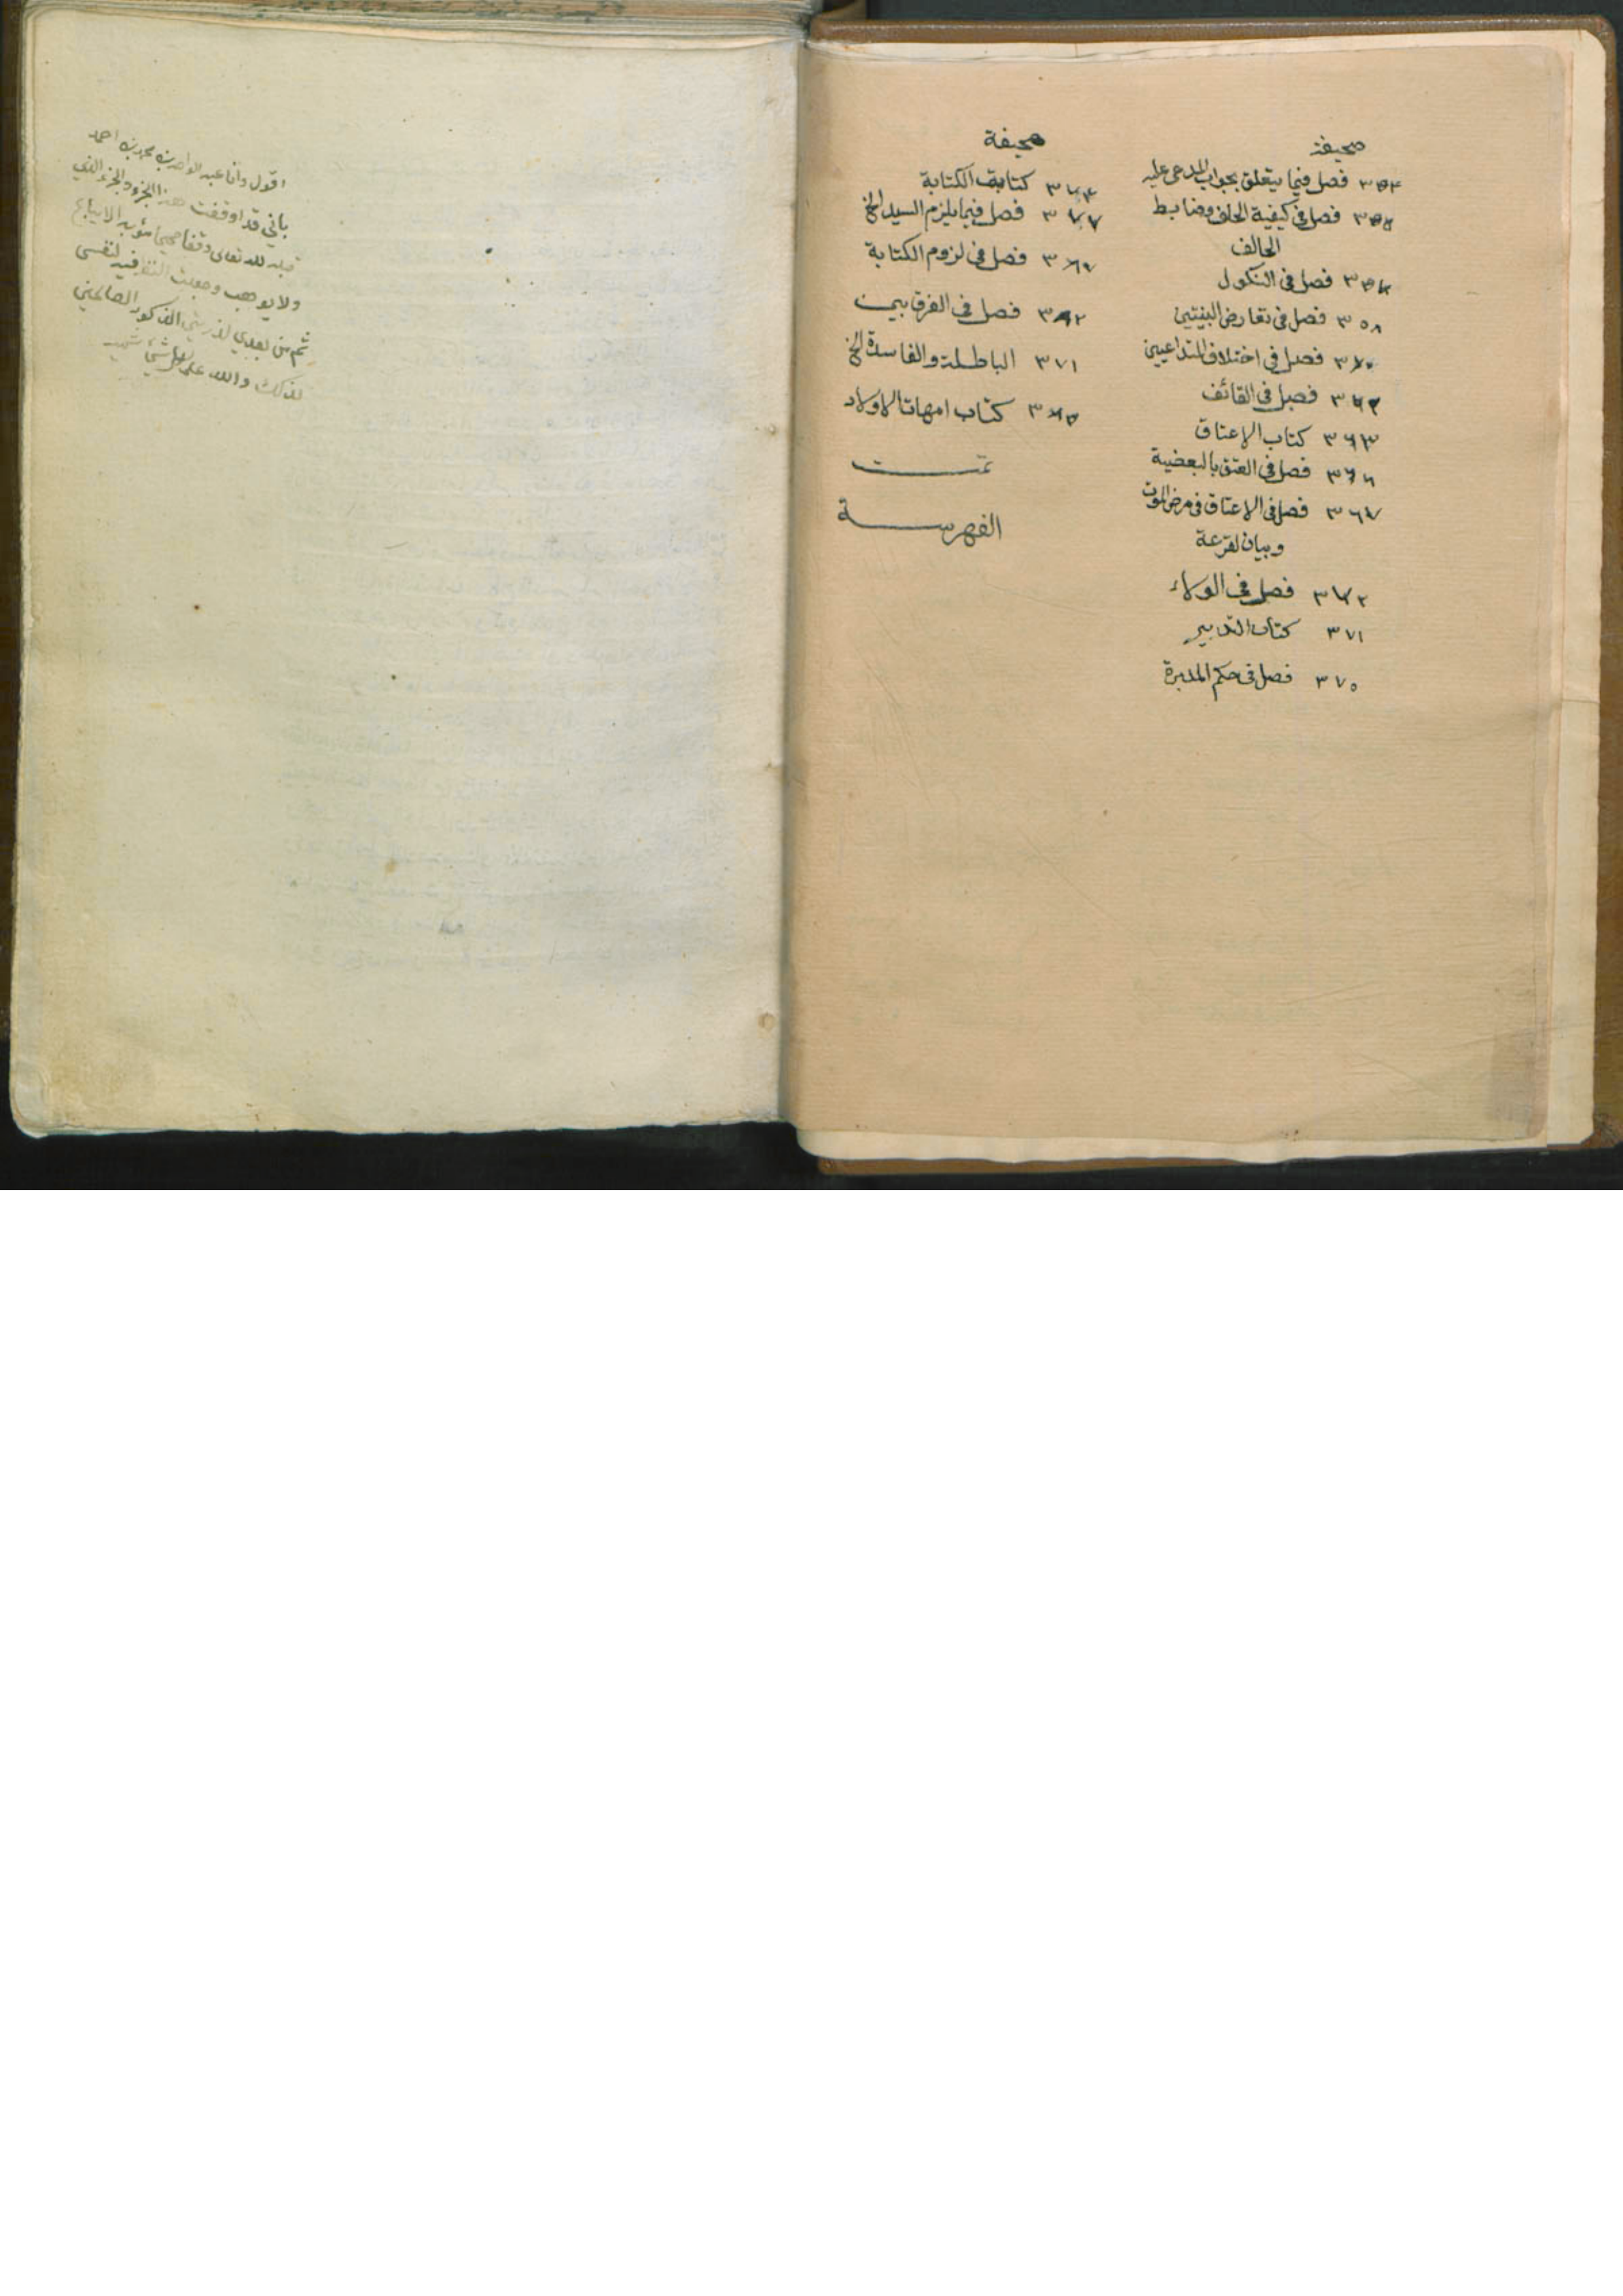 صحيفة
فصل فيما يتعلق بجواب المدعى عليه
فصل في كيفية الحلف وضابط
الحالف
فصل في النكول
٣٥٨ فصل في تعارض البينتين
فصل في اختلاف المتداعيين
فصل في القائف
٣٦٣ كتاب الاعتاق
فصل في العتق بالبعضية
٣٦٧ فصل في الاعتاق في مرض الموت
وبيان لقرعة
فصل في الولاء
٣٧١ كتاب التدبير
٣٧٥ فصل في حكم المدبرة
صحيفة
كتاب الكتابة
فصل فيما يلزم السيد الخ
فصل في لزوم الكتابة
فصل في الفرق بين
٣٧١ الباطلة والفاسدة الخ
كتاب امهات الاولاد
تمت
الفهرسة
اقول وانا عبد الواحد بن محمد بن احمد
باني قد اوقفت هذا الجزء والجزء الذي
قبله لله تعالى وقفا صحيحا مؤبدا لا يباع
ولا يوهب وجعلت النظر فيه لنفسي
ثم من بعدي لذريتي الذكور الصالحين
لذلك والله على كل شيء شهيد